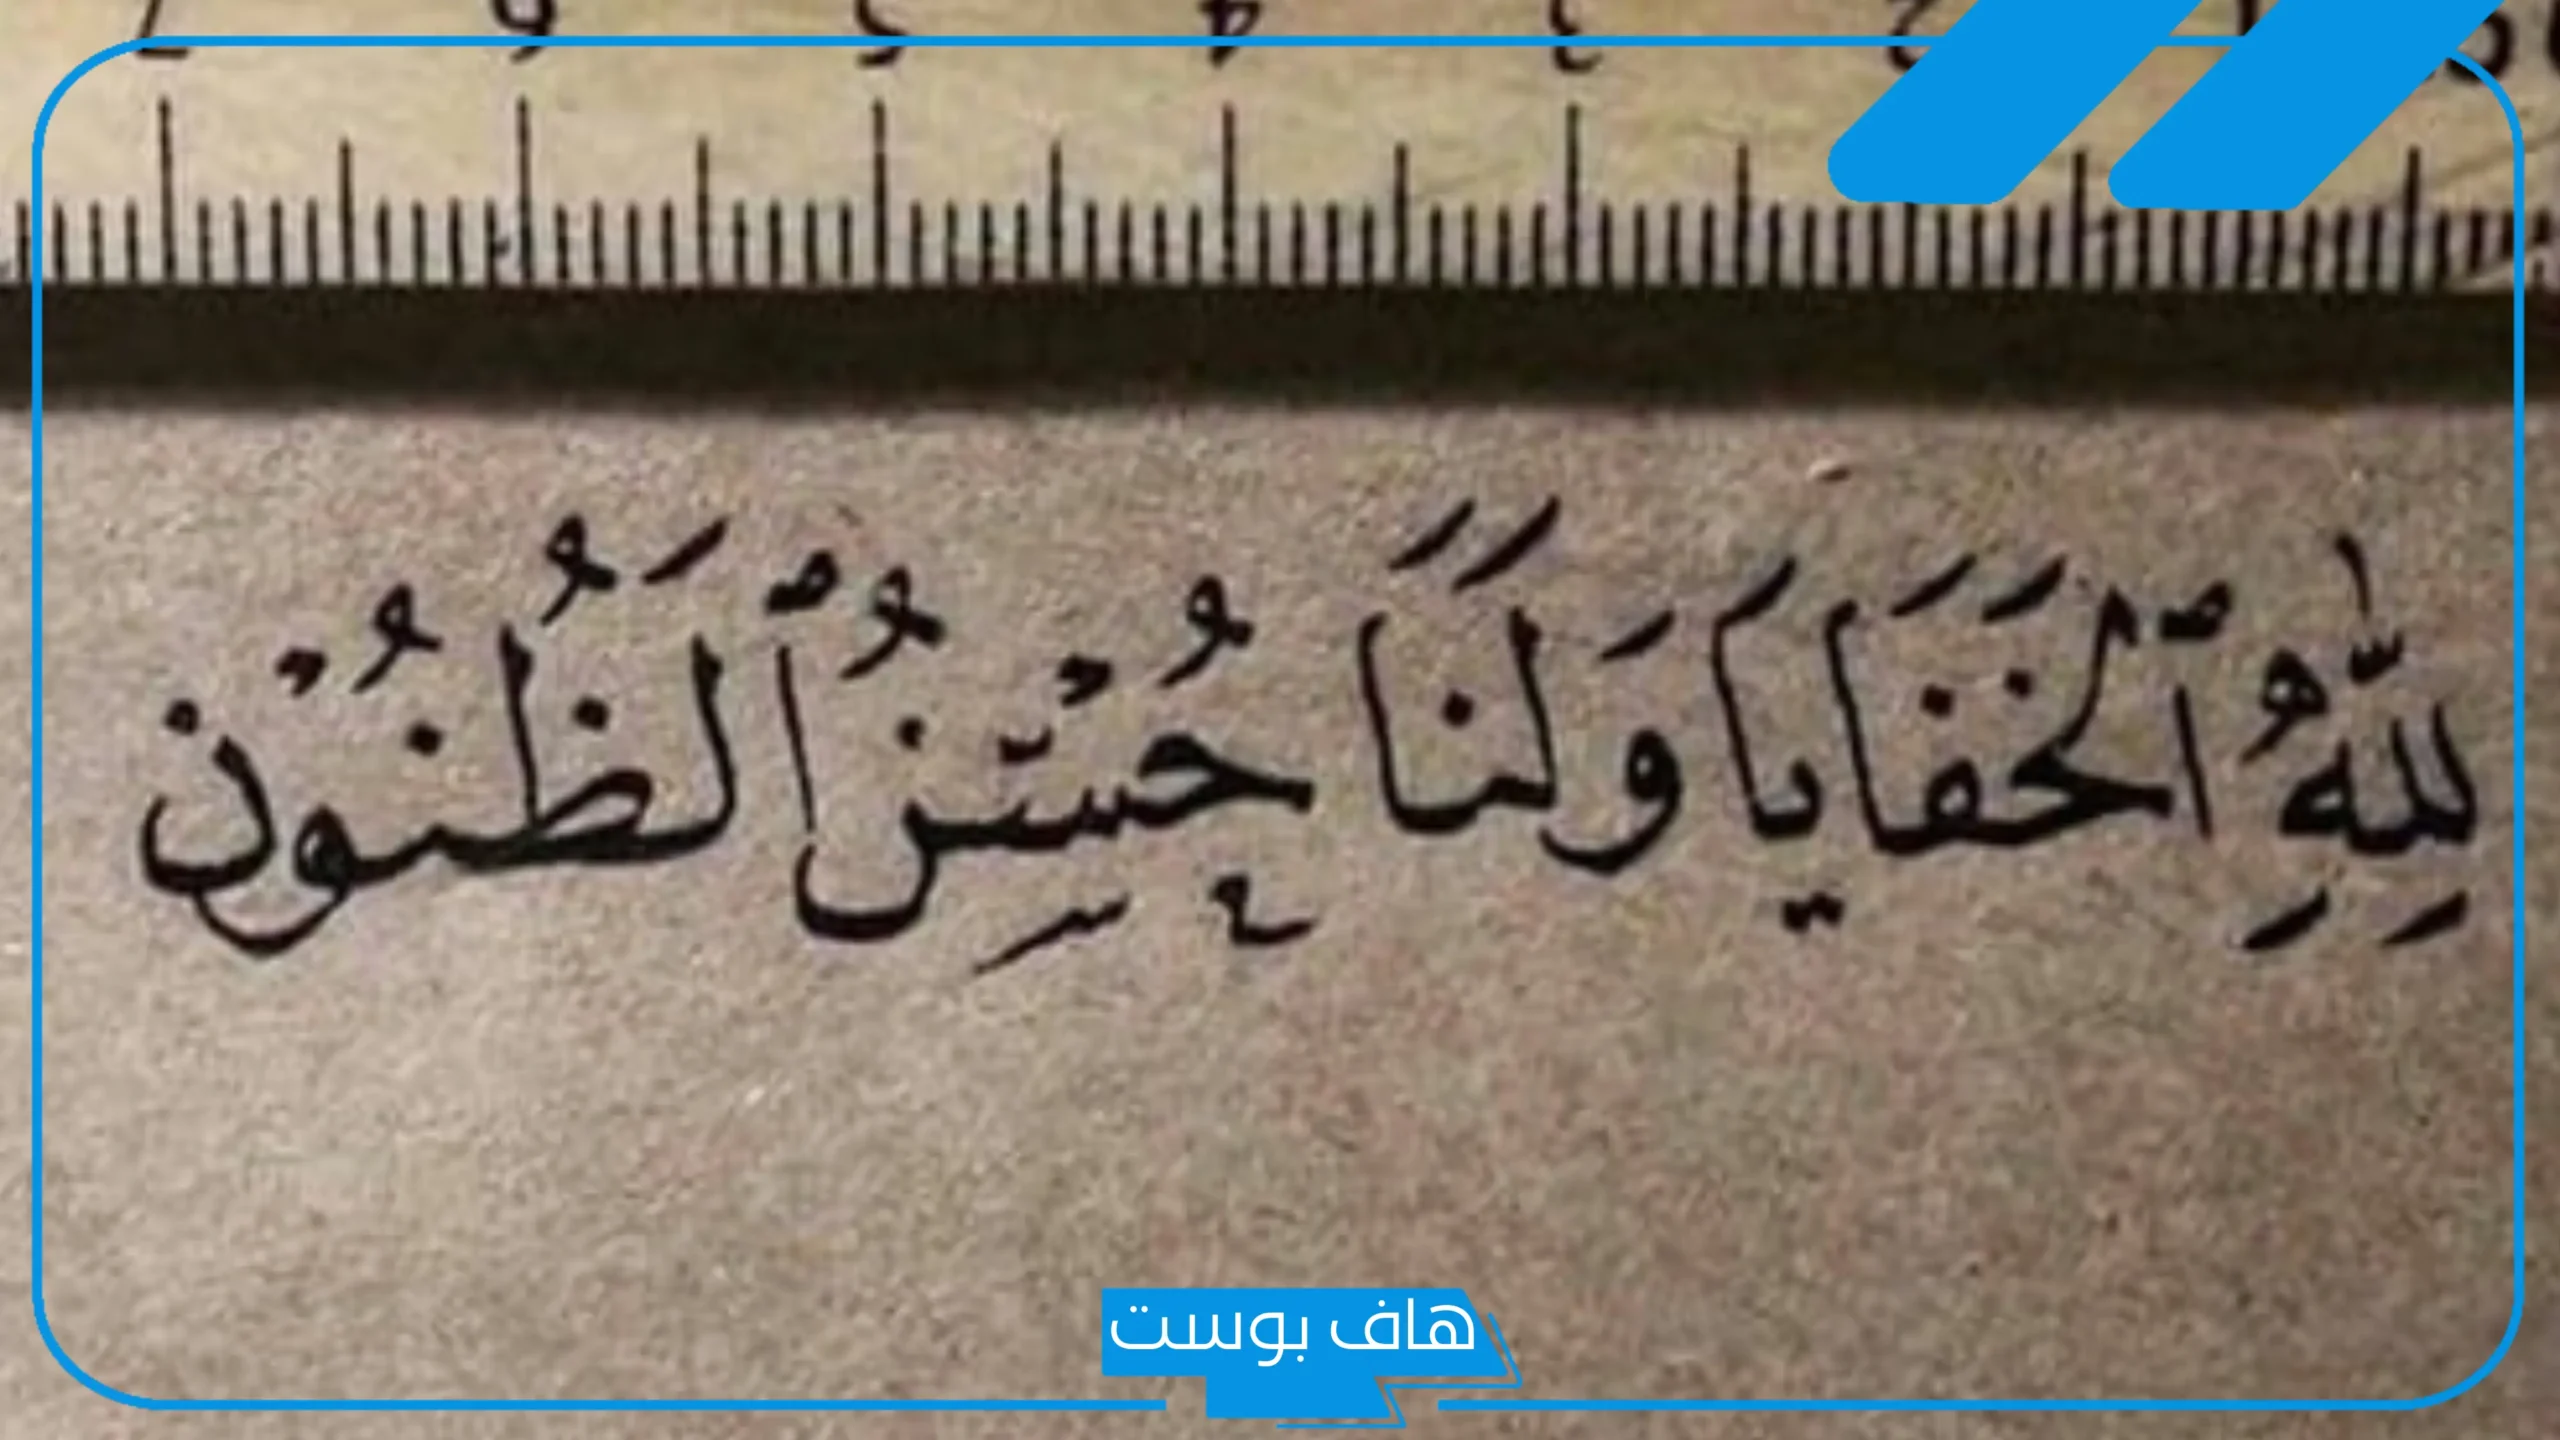 7 6 5 4 3 2 1
لِلّٰهِ ٱلْخَفَايَا وَلَنَا حُسْنُ ٱلظُّنُونْ
هاف بوست